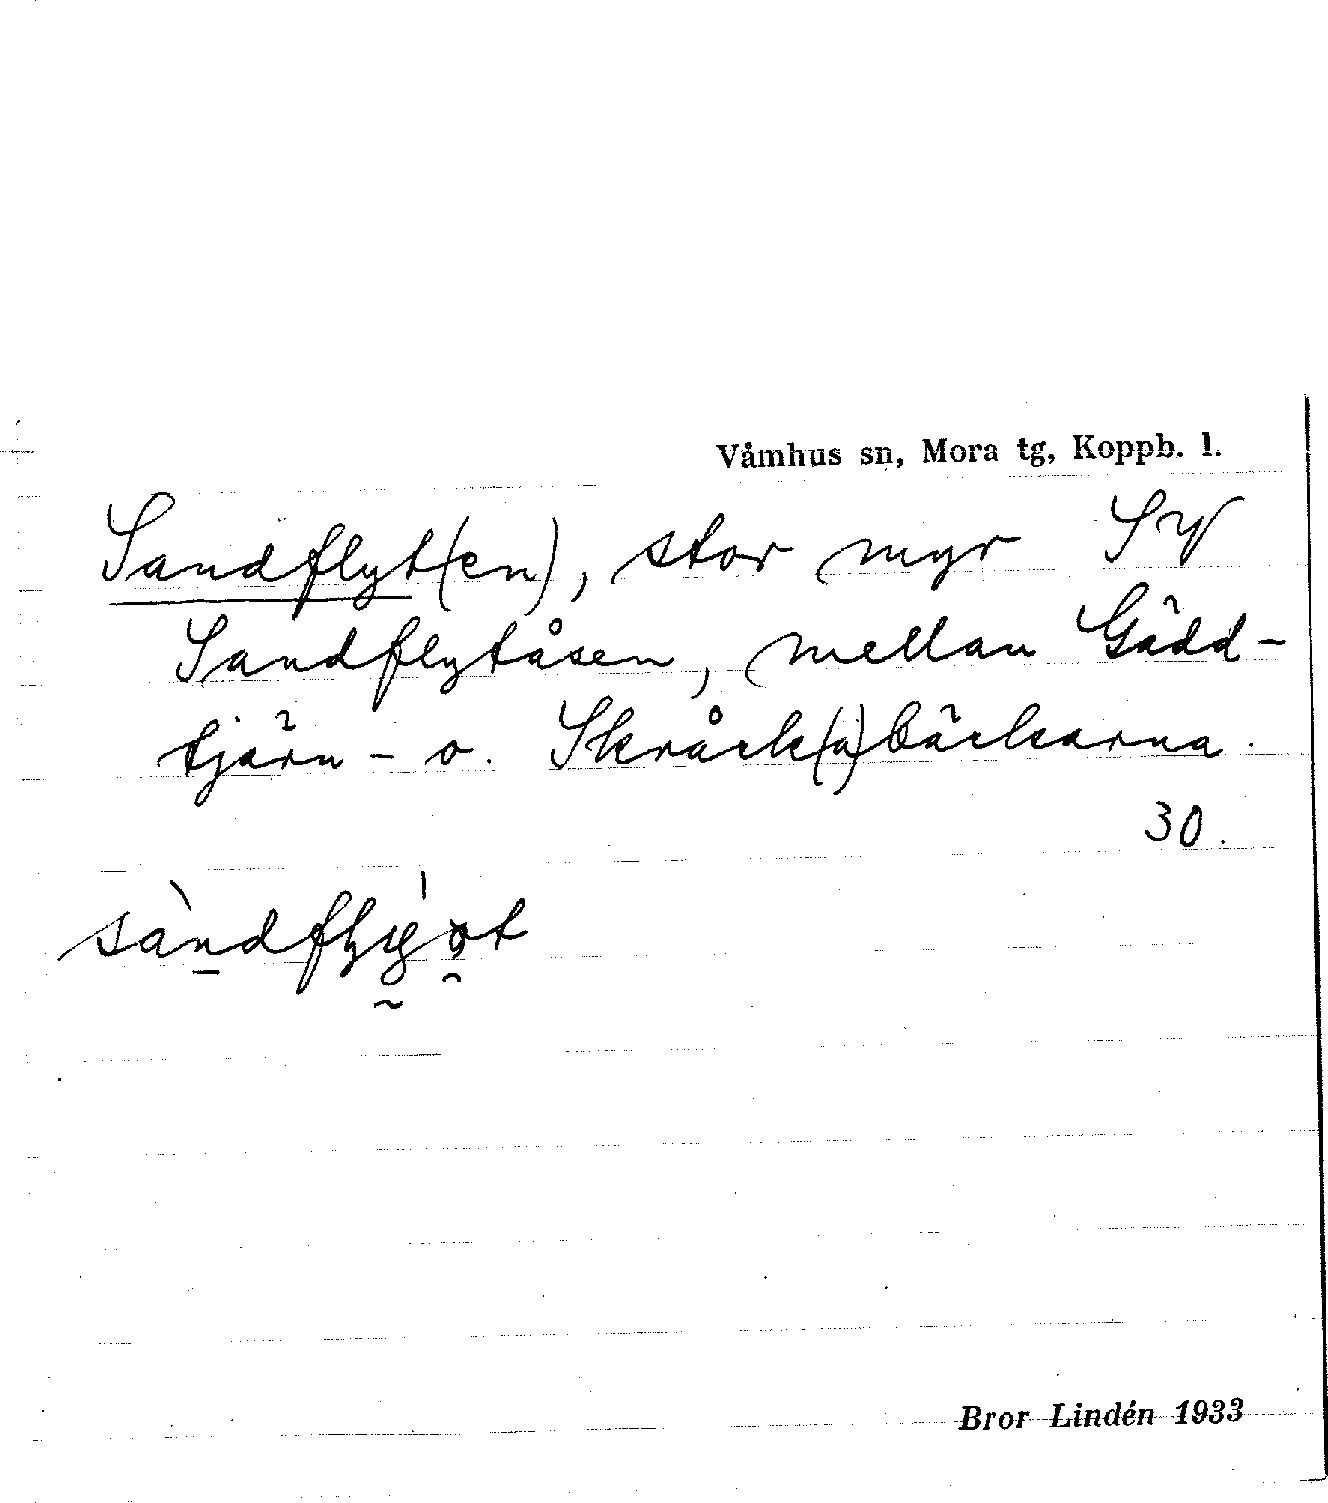 Våmhus sn, Mora tg, Koppb. l.
Sandflyt(en), stor myr SV
Sandflytåsen, mellan Gädd-
tjärn- o. Skråck(a)bäckarna.
30.
Bror Lindén 1933